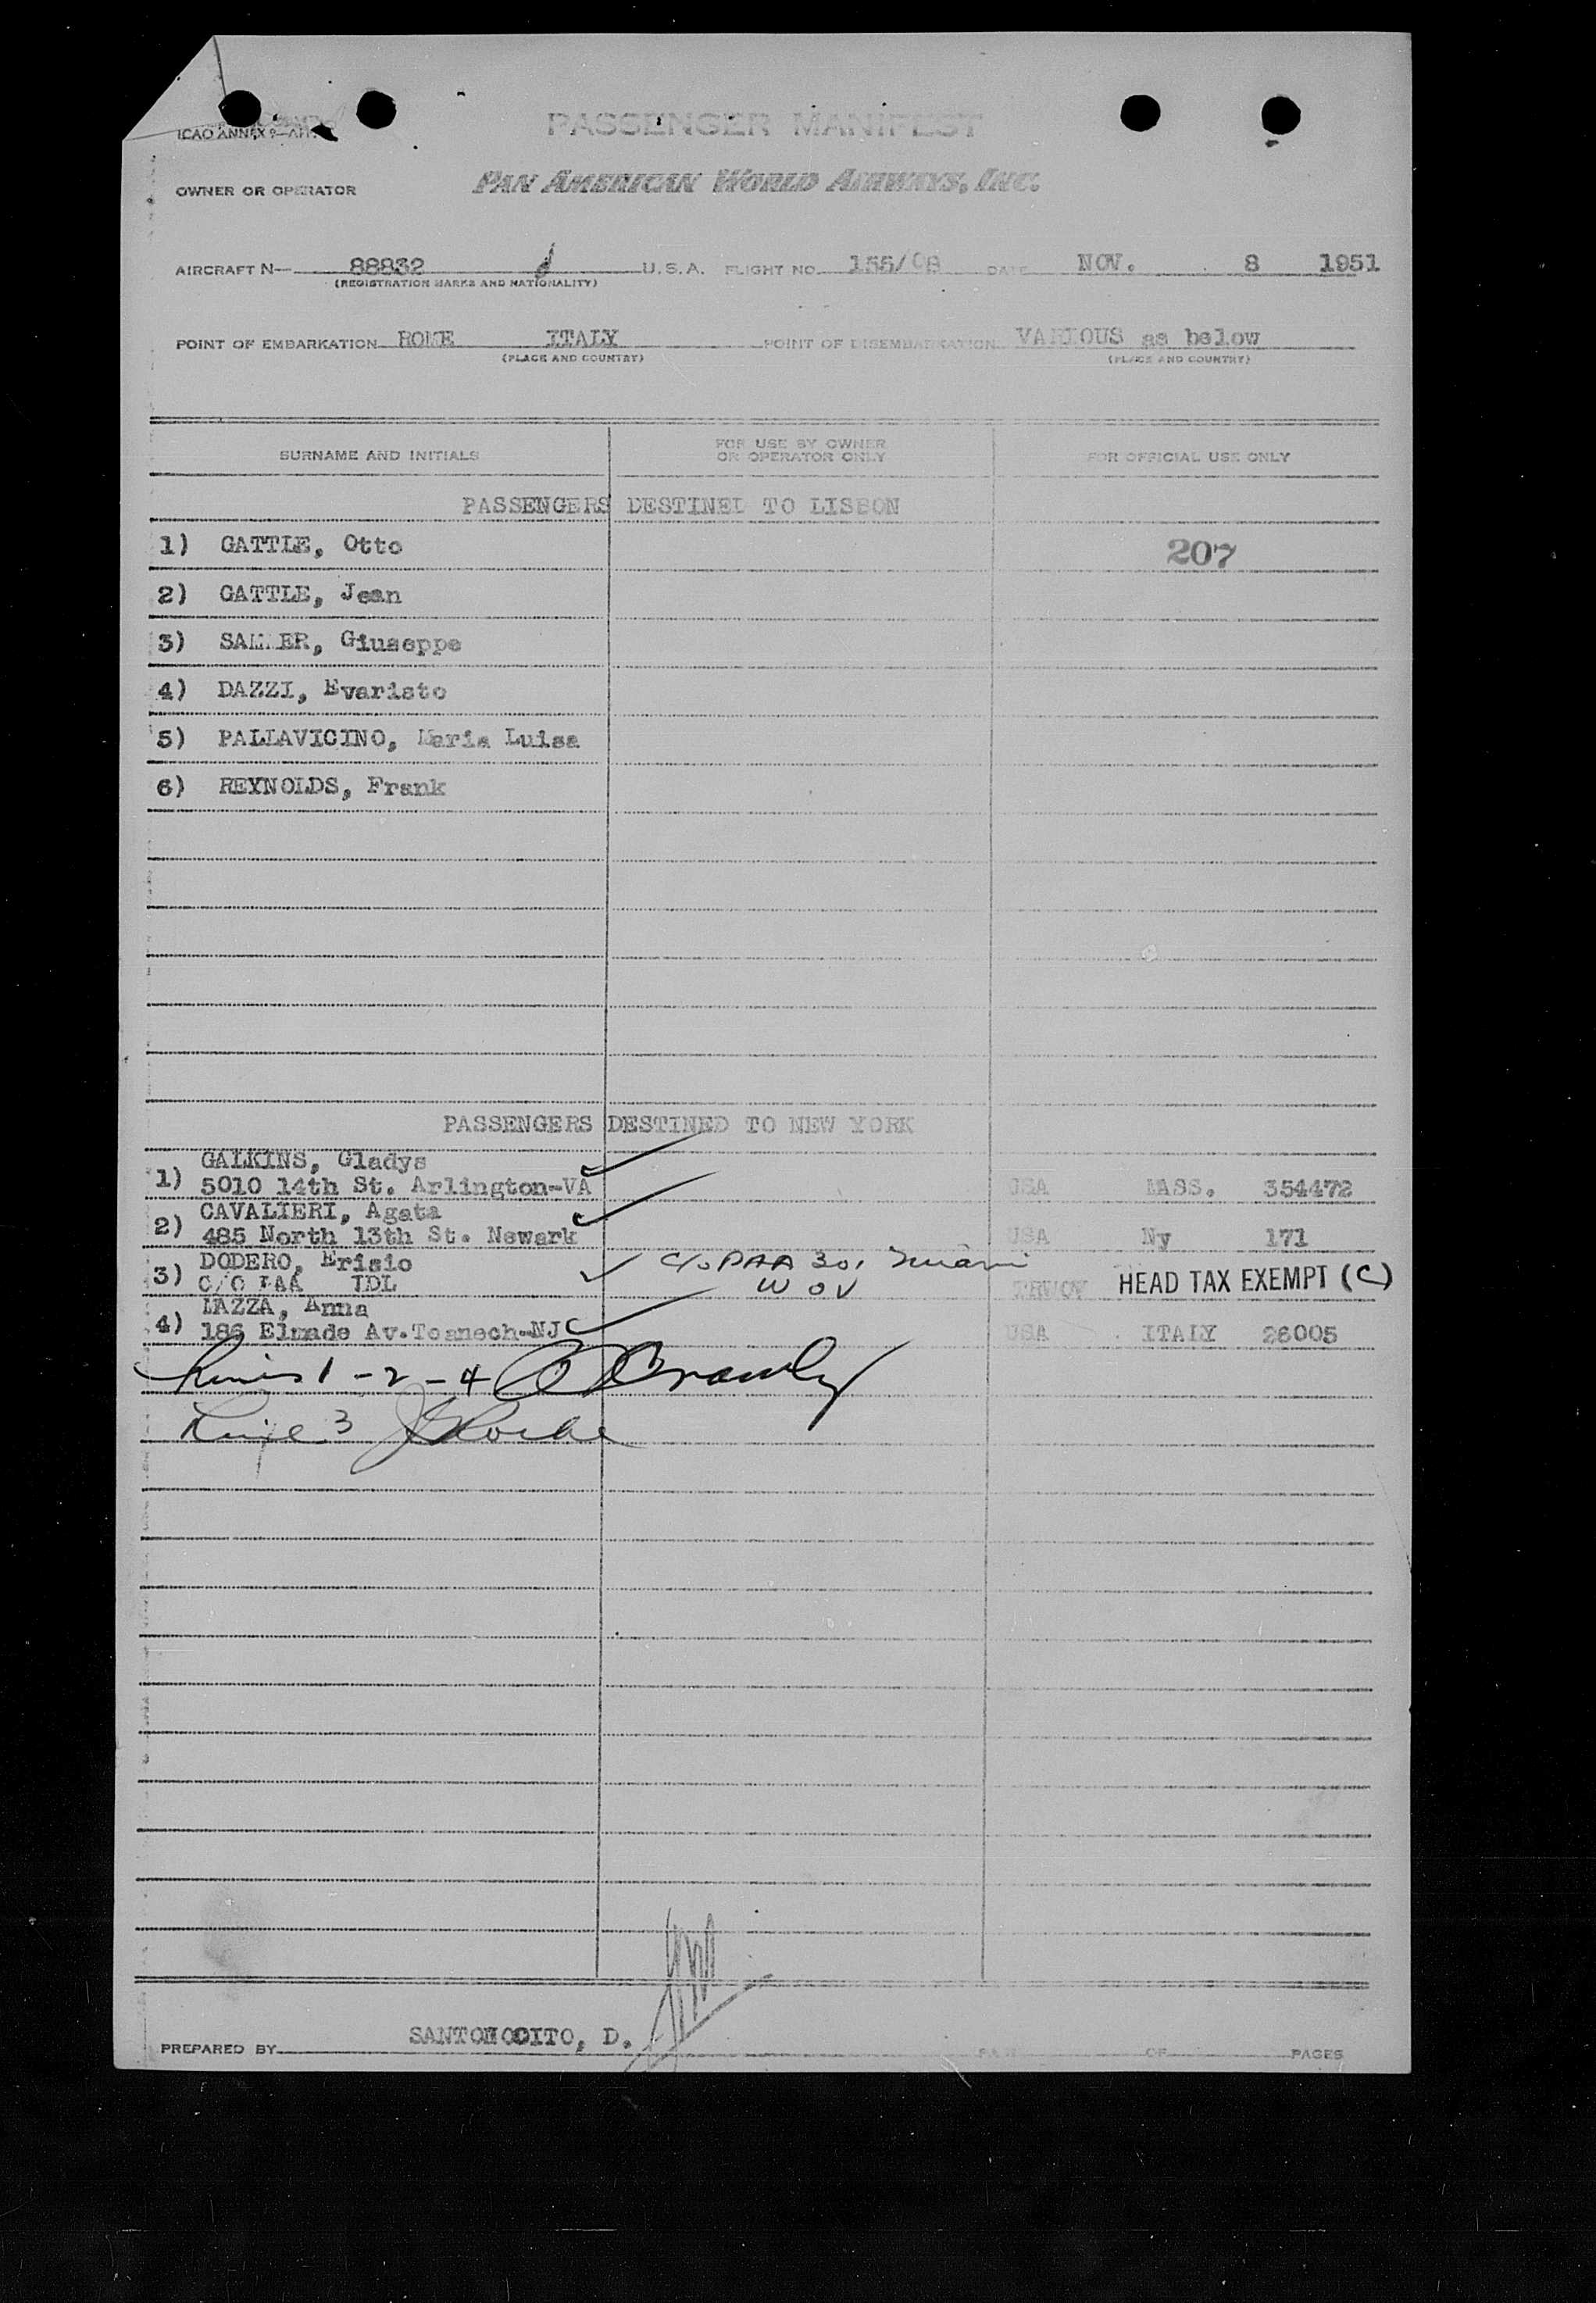 ICAO ANNEX 9—
PASSENGER MANIFEST
OWNER OR OPERATOR PAN AMERICAN WORLD AIRWAYS, INC.
AIRCRAFT N— 88832 U.S.A. FLIGHT NO. 155/08 DATE NOV. 8 1951
(REGISTRATION MARKS AND NATIONALITY)
POINT OF EMBARKATION ROME ITALY POINT OF DISEMBARKATION VARIOUS as below
(PLACE AND COUNTRY) (PLACE AND COUNTRY)
SURNAME AND INITIALS FOR USE BY OWNER OR OPERATOR ONLY FOR OFFICIAL USE ONLY
PASSENGERS DESTINED TO LISBON
1) GATTLE, Otto 207
2) GATTLE, Jean
3) Giuseppe
4) DAZZI, Evaristo
5) PALLAVICINO, Maria Luisa
6) REYNOLDS, Frank
PASSENGERS DESTINED TO NEW YORK
GALKINS, Gladys
1) 5010 14th St. Arlington-VA USA MASS. 354472
CAVALIERI, Agata
2) 485 North 13th St. Newark USA Ny 171
DODERO, Erisio c/o PAA 301 Miami
3) C/O PAA IDL W O V TRWOV HEAD TAX EXEMPT (C)
MAZZA, Anna
4) 186 Elmade Av. Teanech-NJ USA ITALY 26005
Lines 1 - 2 - 4
Line 3
PREPARED BY D. OF PAGES